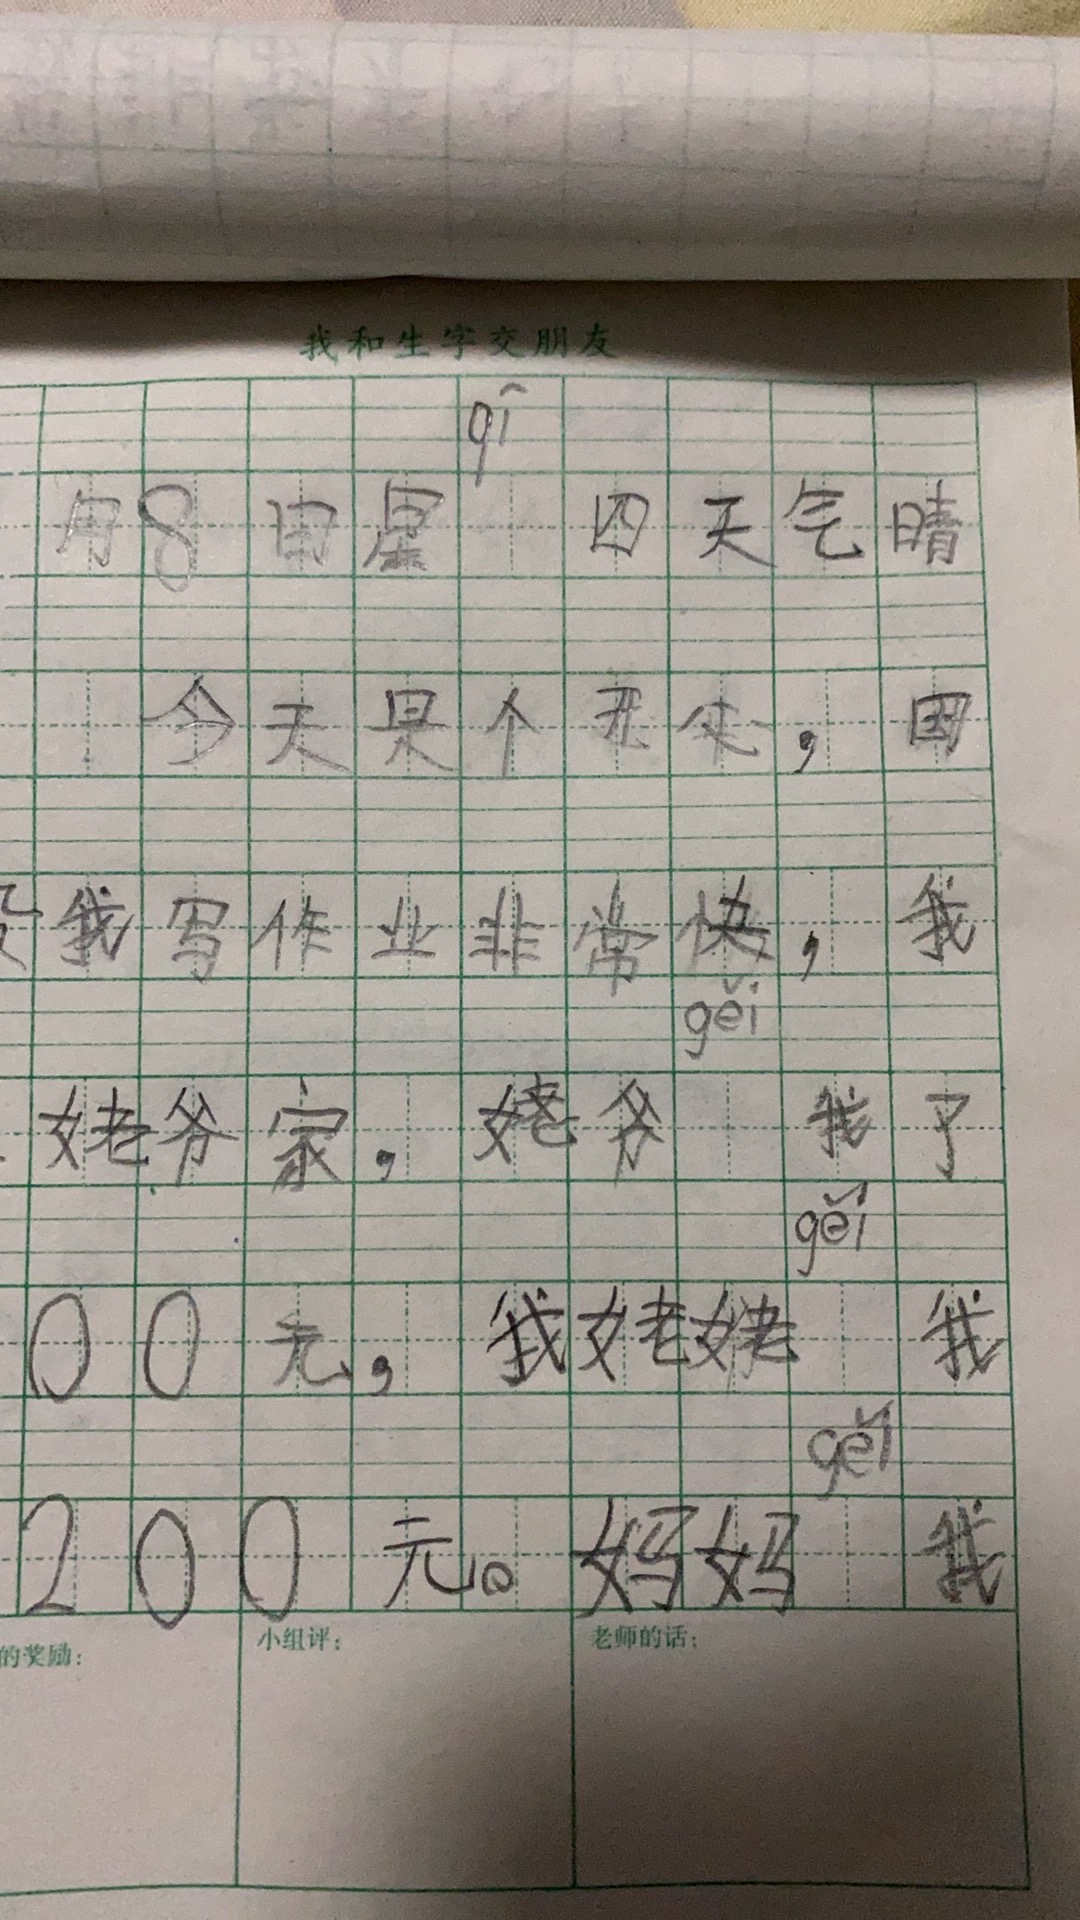 我和生字交朋友
qī
月8日星 四天气晴
今天是个开心,因
我写作业非常快,我
gěi
姥爷家,姥爷 我了
gěi
00元,我姥姥 我
gěi
200元。妈妈 我
的奖励: 小组评: 老师的话: